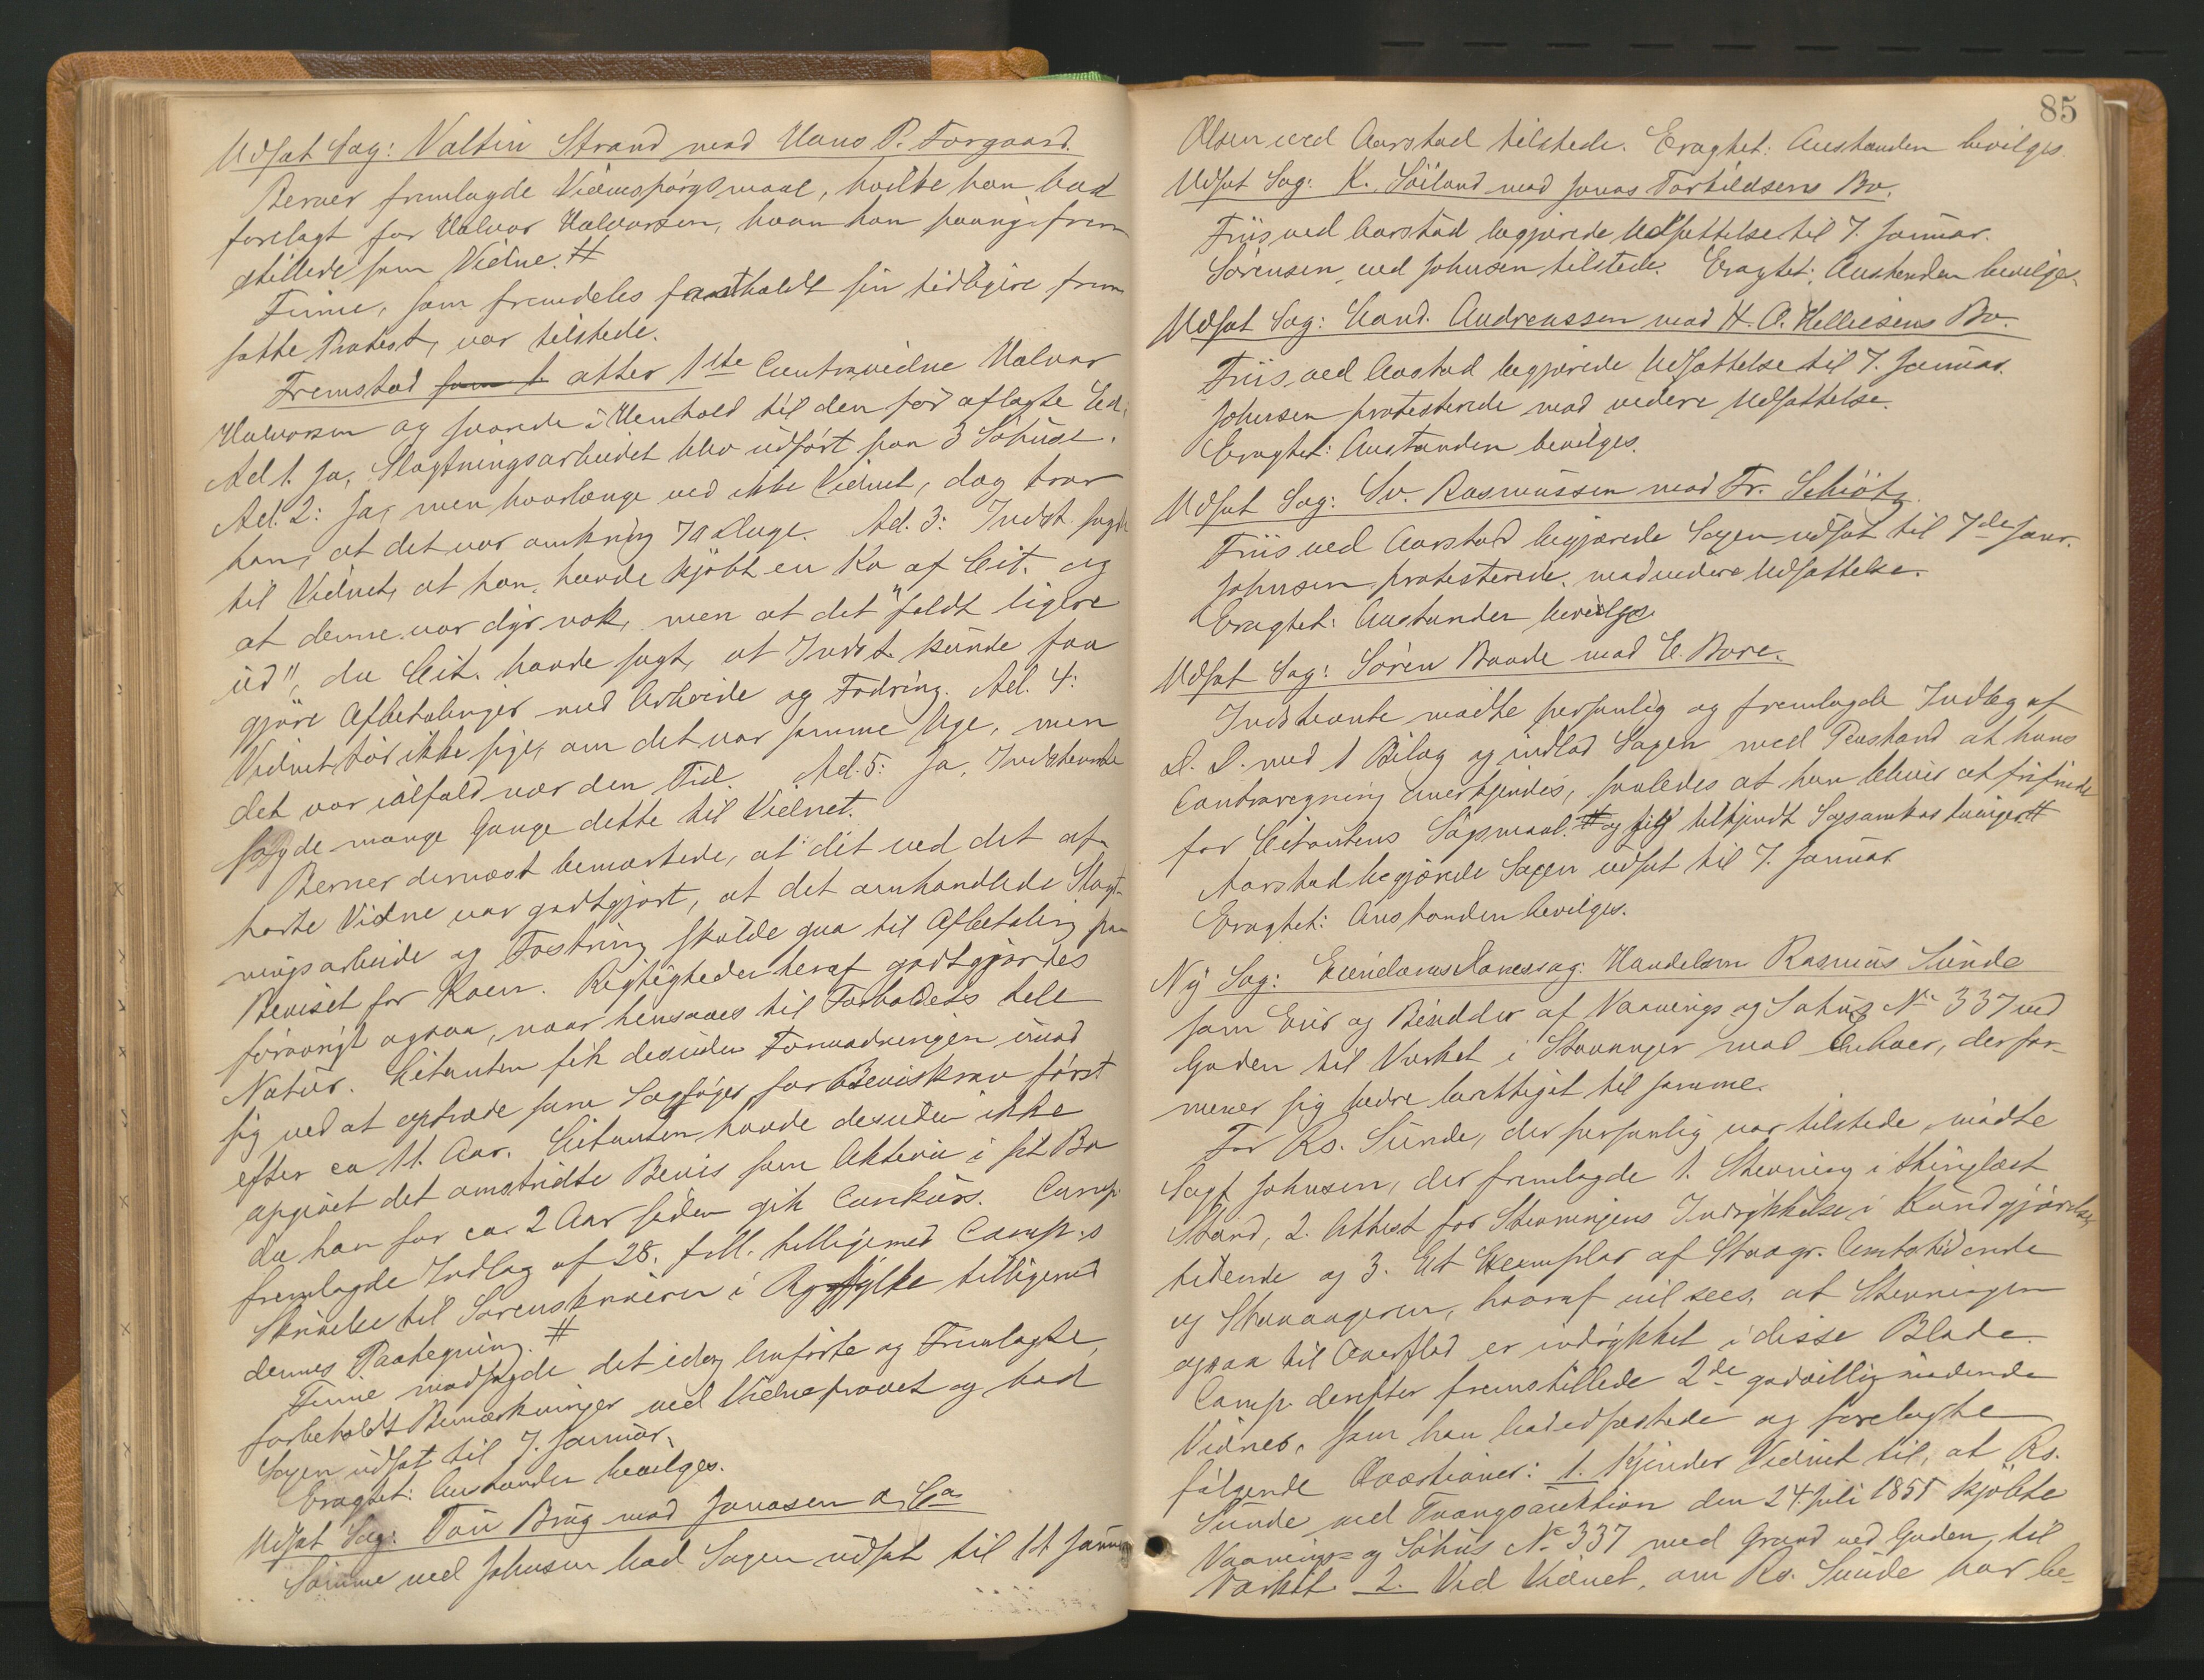 Udsat Sag: Valtin Strand mod Hans P. Torgaard.
Berner fremlagde Vidnespørgsmaal, hvilke han bad
forelagt for Halvor Halvorsen, hvem han paany frem
stillede som Vidne. #
Finne, som fremdeles fastholdt sin tidligere frem
satte Protest, var tilstede.
Fremstod som 1. atter 1ste Contravidne Halvor
Halvorsen og svarede i Henhold til den før aflagte Ed.
Ad 1. Ja, Slagtningsarbeidet blev udført paa 3 Søhuse.
Ad. 2: Ja, men hvorlænge ved ikke Vidnet, dog tror
han, at det var omkring 7 a 8 Uge. Ad. 3: Indst. sagde
til Vidnet, at han havde kjøbt en Ko af Cit. og
at denne var dyr nok, men at det "faldt ligere
ud", da Cit. havde sagt, at Indst. kunde faa
gjøre Afbetalinger med Arbeide og Fodring. Ad. 4:
Vidnet tør ikke sige, om det var samme Uge, men
det var ialfald nær den Tid. Ad. 5: Ja, Indstevnte
sagde mange Gange dette til Vidnet.
Berner dernæst bemærkede, at det ved det af-
hørte Vidne var godtgjort, at det omhandlede Slagt-
ningsarbeide og Fostring skulde gaa til Afbetaling paa
Beviset for Koen. Rigtigheden heraf godtgjørdes
forøvrigt ogsaa, naar hensaaes til Forholdets hele
Natur. Citanten fik desuden Formodningen imod
sig ved at optræde som Sagsøger for Beviskrav først
efter ca 11. Aar. Citanten havde desuden ikke
opgivet det omstridte Bevis som Aktiva i sit Bo
da han for ca. 2 Aar siden gik Conkurs. Comp.
fremlagde Indlæg af 28. f. M. tilligemed Comp.s
Skrivelse til Sorenskriveren i Ryfylke tilligemed
dennes Paategning. #
Finne modsagde det idag Anførte og Fremlagte,
forbeholdt Bemærkninger ved Vidneprovet og bad
Sagen udsat til 7. Januar.
Eragtet: Anstanden bevilges.
Udsat Sag: Tou Brug mod Jonasen & Co
Sømme ved Johnsen bad Sagen udsat til 14 Januar
85
Olsen ved Aarstad tilstede. Eragtet: Anstanden bevilges.
Udsat Sag: K. Söiland mod Jonas Torkildsens Bo.
Friis ved Aarstad begjærede Udsættelse til 7. Januar.
Sørensen ved Johnsen tilstede. Eragtet: Anstanden bevilges.
Udsat Sag: Cand. Andreassen mod H. O. Helliesens Bo.
Friis ved Aastad begjærede Udsættelse til 7. Januar.
Johnsen protesterede mod videre Udsættelse.
Eragtet: Anstanden bevilges.
Udsat Sag: Sv. Rasmussen mod Fr. Schiøtz.
Friis ved Aarstad begjærede Sagen udsat til 7de Janr.
Johnsen protesterede mod videre Udsættelse.
Eragtet: Anstanden bevilges
Udsat Sag: Søren Baade mod E. Bore.
Indstevnte mødte personlig og fremlagde Indlæg af
D. D. med 1 Bilag og indlod Sagen med Paastand at hans
Contraregning anerkjendes, saaledes at han bliver at frifinde
for Citantens Søgsmaal. # og sig tilkjendt Sagsomkostninger #
Aarstad begjærede Sagen udsat til 7. Januar
Eragtet: Anstanden bevilges.
Ny Sag: Eiendomsdomssag: Handelsm Rasmus Sunde
som Eier og Besidder af Vaanings og Søhus No 337 ved
Gaden til Verket i Stavanger mod Enhver, der for-
mener sig bedre berettiget til samme.
For Rs. Sunde, der personlig var tilstede, mødte
Sagf. Johnsen, der fremlagde 1. Stevning i thinglæst
Stand, 2. Attest for Stevningens Indrykkelse i Kundgjørelses
tidende og 3. Et Exemplar af Stavgr. Amtstidende
og Stavangeren, hvoraf vil sees, at Stevningen
ogsaa til Overflod er indrykket i disse Blade.
Comp. derefter fremstillede 2de godvillig mødende
Vidner, som han bad edfæstede og forelagte
følgende Qvæstioner: 1. Kjender Vidnet til, at Rs.
Sunde ved Tvangsauktion den 24. Juli 1855 kjøbte
Vaanings- og Søhus No 337 med Grund ved Gaden til
Værket. 2. Ved Vidnet, om Rs. Sunde har be-